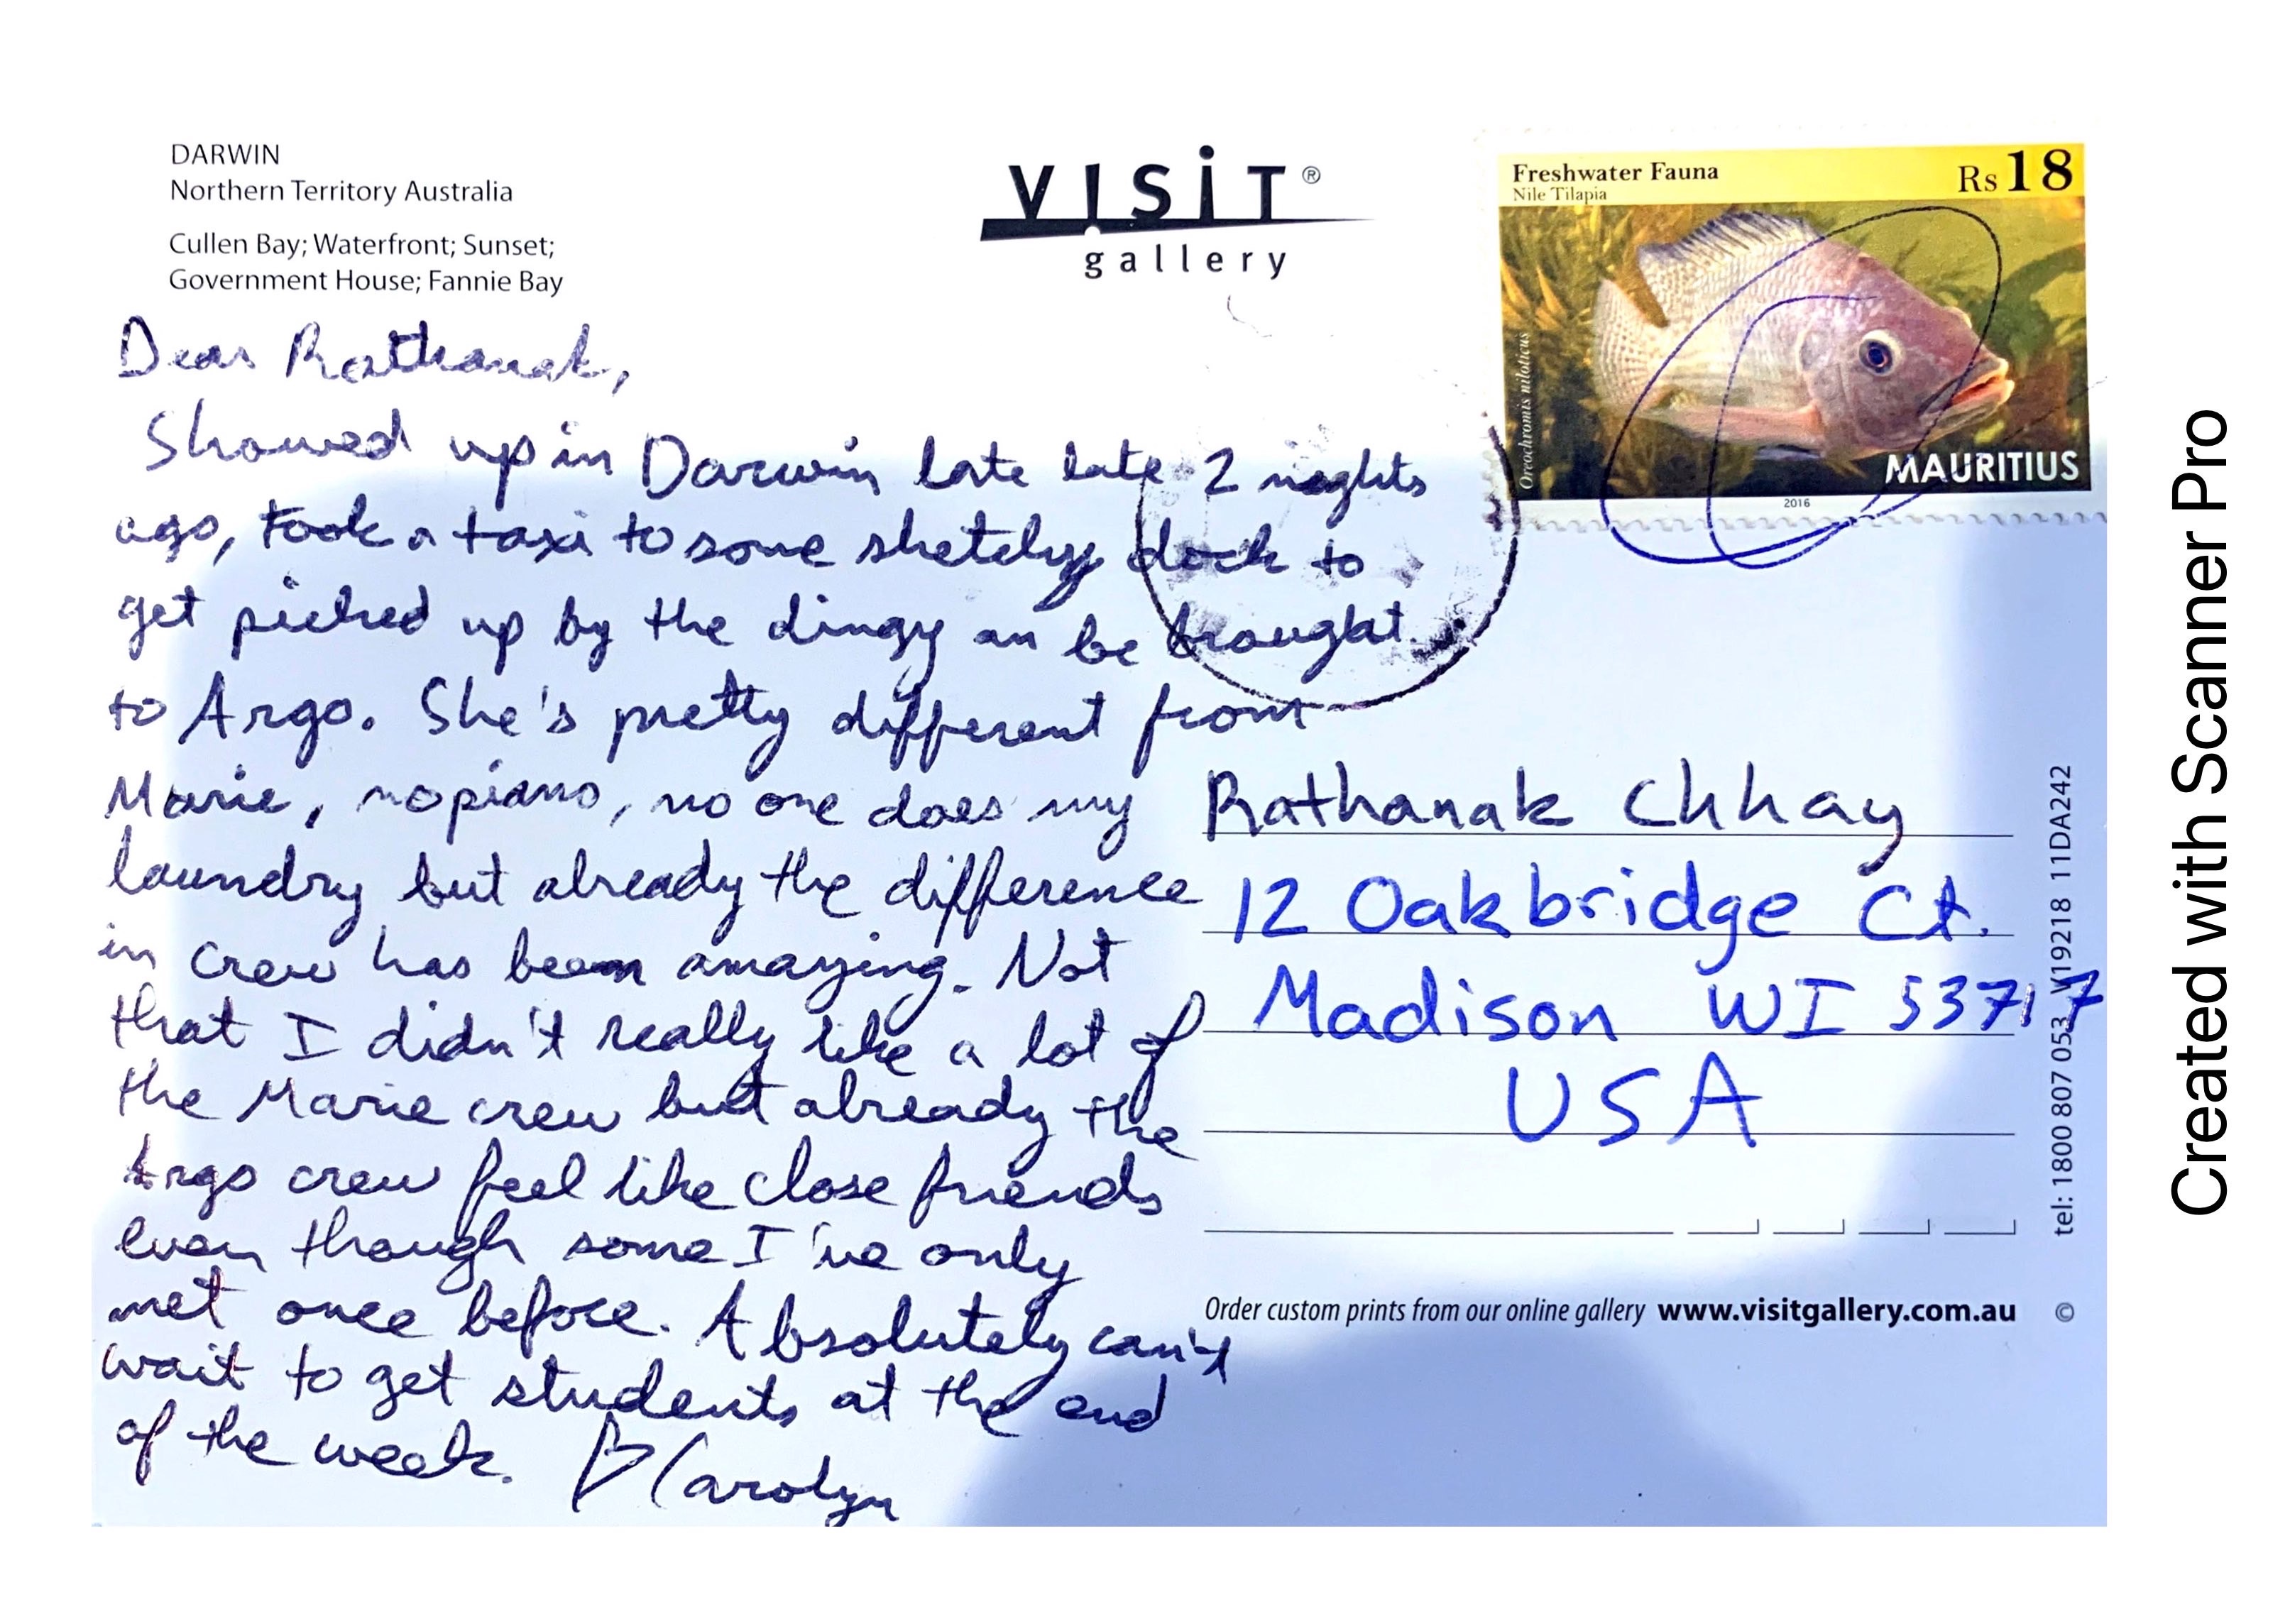 DARWIN
Northern Territory Australia
Cullen Bay; Waterfront; Sunset;
Government House; Fannie Bay
VISIT®
gallery
Freshwater Fauna
Nile Tilapia
Rs 18
Oreochromis niloticus
MAURITIUS
2016
Dear Rathanak,
Showed up in Darwin late late 2 nights
ago, took a taxi to some sketchy dock to
get picked up by the dingy an be brought
to Argo. She's pretty different from
Marie, no piano, no one does my
laundry but already the difference
in crew has been amazing. Not
that I didn't really like a lot of
the Marie crew but already the
Argo crew feel like close friends
even though some I've only
met once before. Absolutely can't
wait to get students at the end
of the week. Carolyn
Rathanak Chhay
12 Oakbridge Ct.
Madison WI 53717
USA
tel: 1800 807 053 V19218 11DA242
Order custom prints from our online gallery www.visitgallery.com.au ©
Created with Scanner Pro